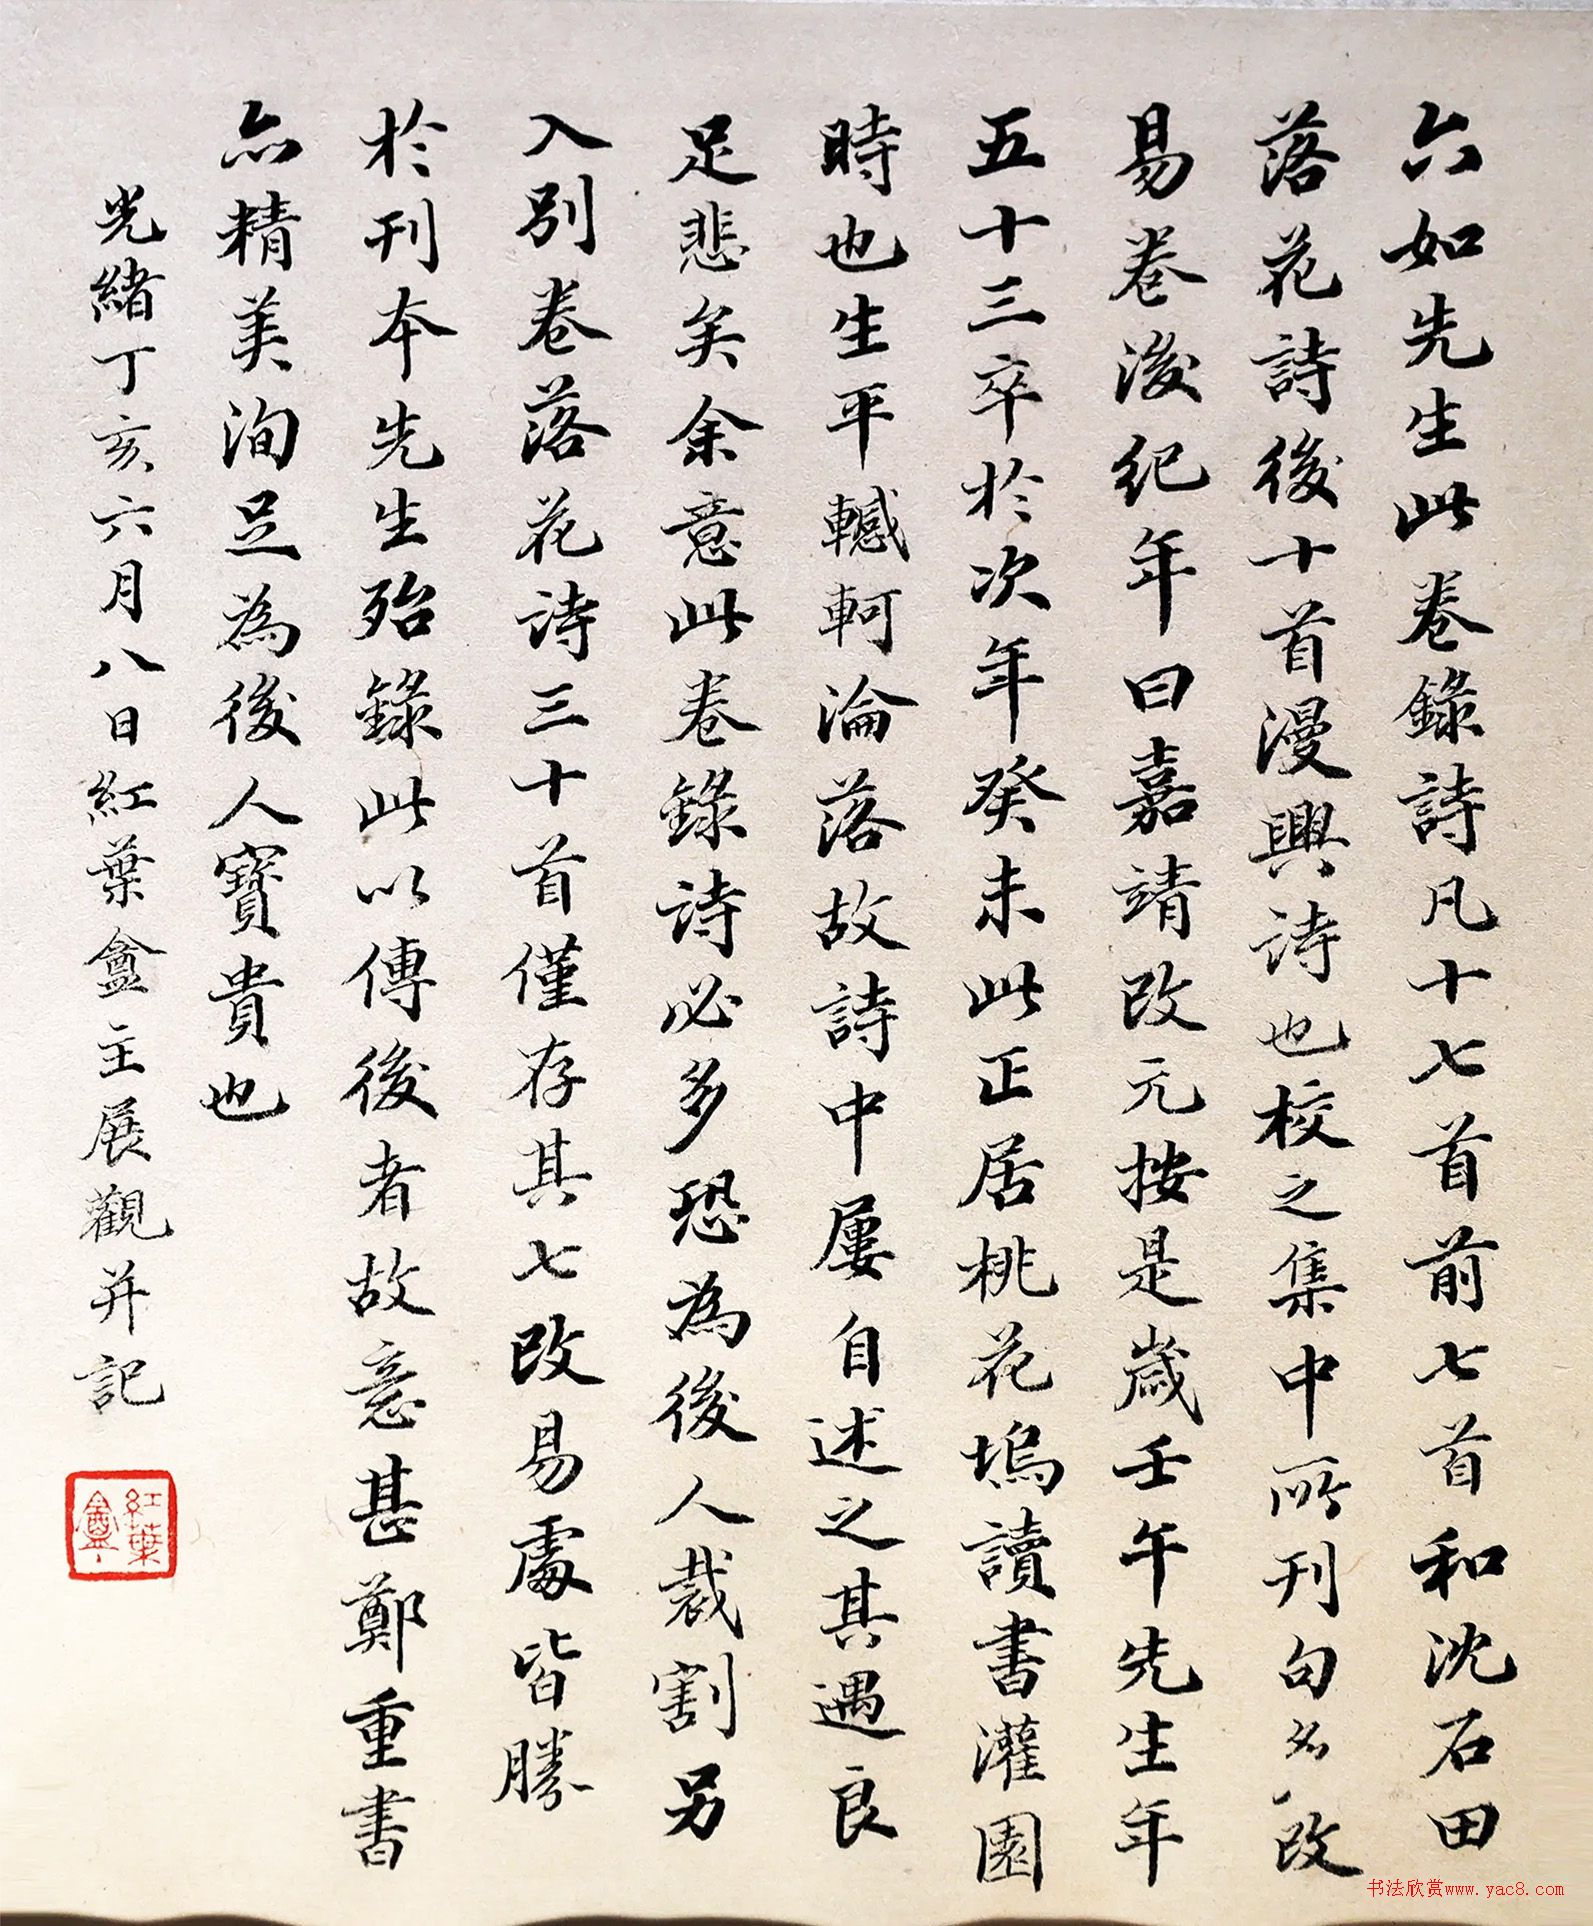 六如先生此卷錄詩凡十七首前七首和沈石田
落花詩後十首漫興詩也校之集中所刊句多改
易卷後紀年曰嘉靖改元按是歲壬午先生年
五十三卒於次年癸未此正居桃花塢讀書灌園
時也生平轗軻淪落故詩中屢自述之其遇良
足悲矣余意此卷錄詩必多恐為後人裁割另
入別卷落花詩三十首僅存其七改易處皆勝
於刊本先生殆錄此以傳後者故意甚鄭重書
亦精美洵足為後人寶貴也
光緒丁亥六月八日紅葉盦主展觀并記
紅葉盦
书法欣赏www.yac8.com